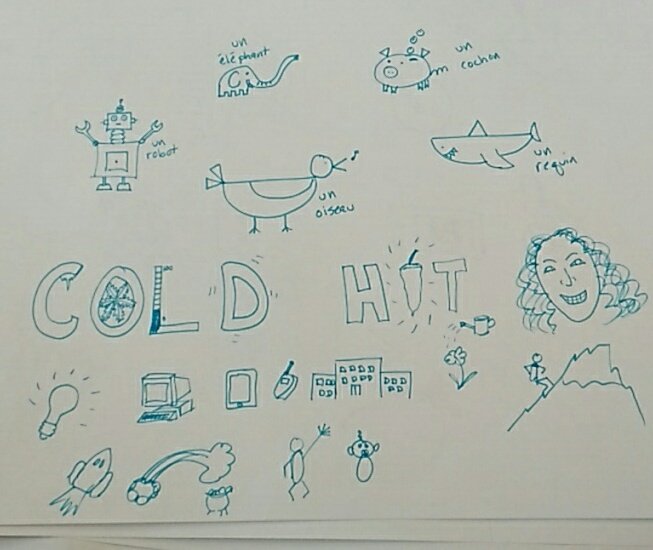 un
éléphant
un
cochon
un
robot
un
requin
un
oiseau
COLD HOT